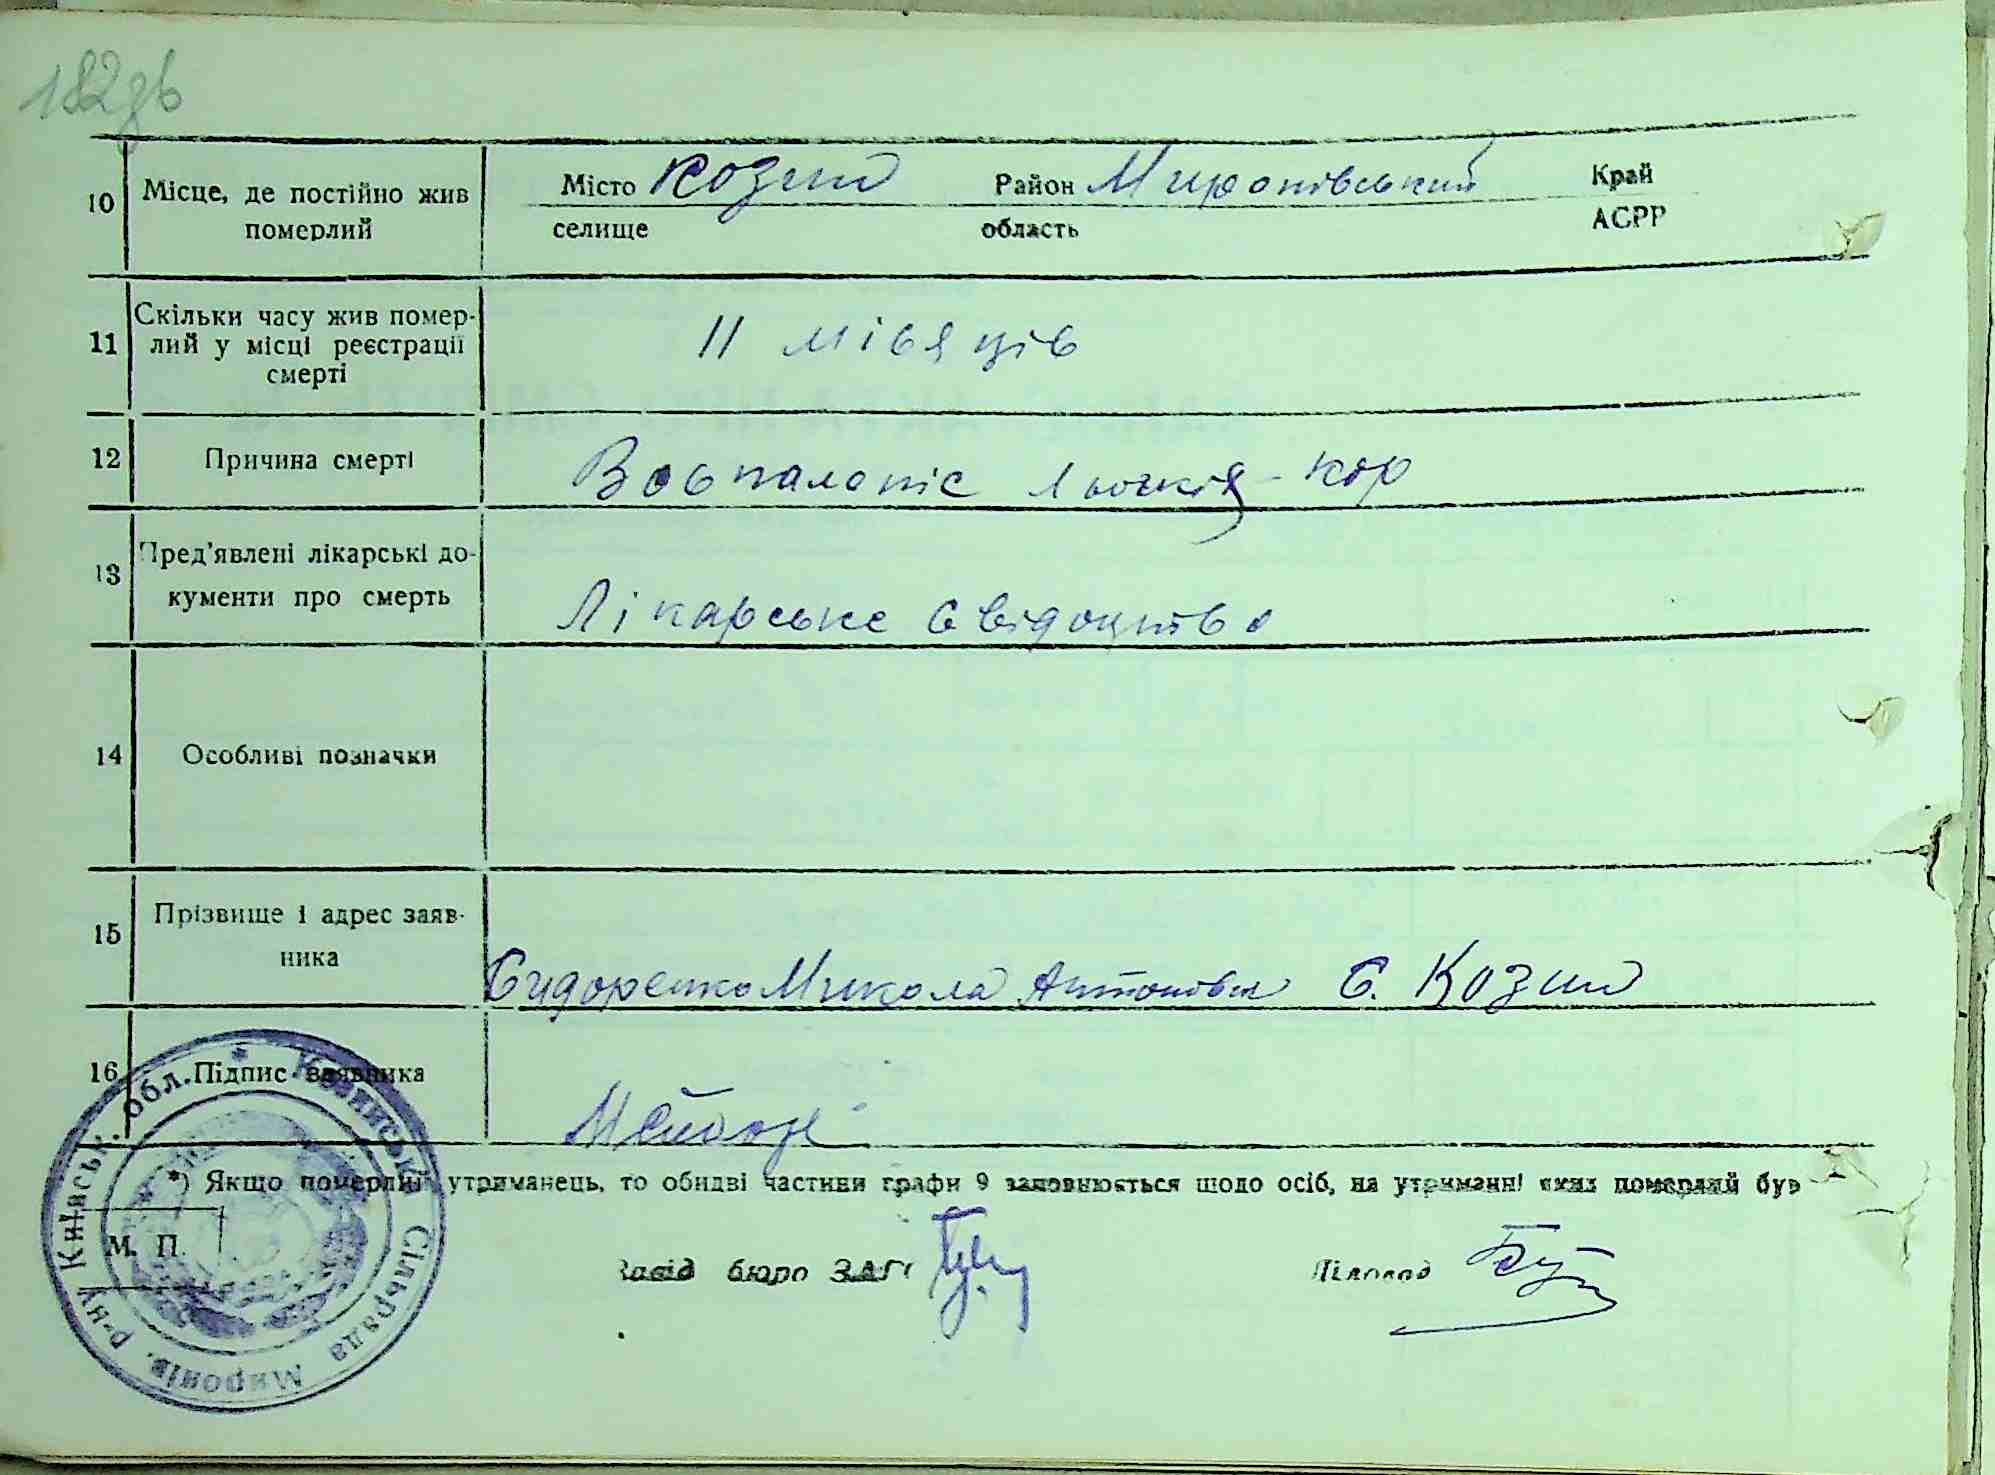 182зв
10 Місце, де постійно жив Місто Козин Район Миронівський Край
померлий селище область АСРР
11 Скільки часу жив помер-
лий у місці реєстрації
смерті
11 місяців
12 Причина смерті Воспаленіє льогкіх - кор
13 Пред'явлені лікарські до-
кументи про смерть
Лікарське свідоцтво
14 Особливі позначки
15 Прізвище і адрес заяв-
ника
Сидоренко Микола Антонович С. Козин
16 Підпис заявника
*) Якщо померлий утриманець, то обидві частини графи 9 заповнюється щодо осіб, на утриманні яких померлий був
М. П.
Завід бюро ЗАГС Діловод
Козинськ. Сільрада Миронів. р-ну Київськ. обл.